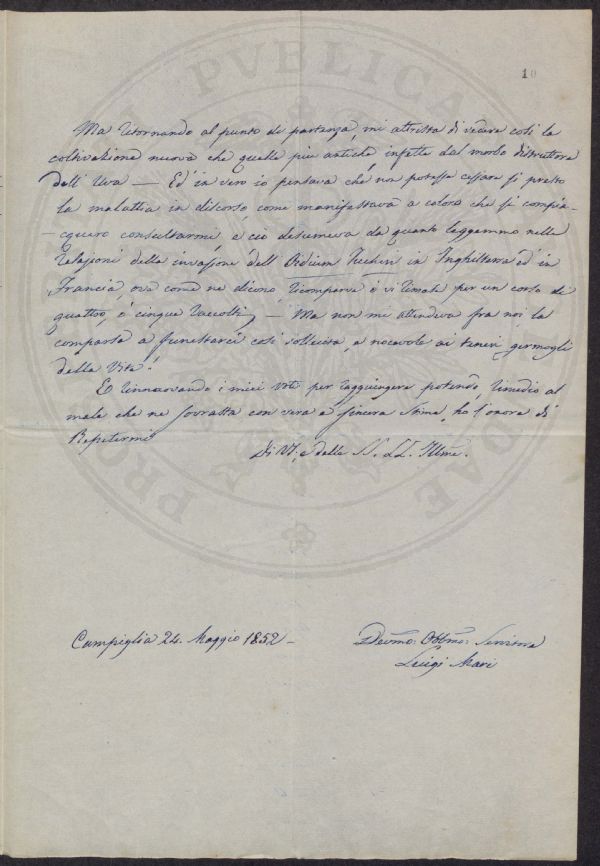 10
Ma ritornando al punto di partenza, mi attrista di vedere così la
coltivazione nuova che quella più antica, infetta dal morbo distruttore
dell' Uva — Ed in vero io pensava che non potesse cessare sì presto
la malattia in discorso, come manifestava a coloro che si compia-
-cquero consultarmi, e ciò desumeva da quanto leggemmo nelle
relazioni della invasione dell' Oidium Tuckeri in Inghilterra ed in
Francia, ove come ne dicono, ricomparve o vi rimase per un corso di
quattro, o cinque raccolti — Ma non mi attendeva fra noi la
comparsa a funestarci così sollecita, e nocevole ai teneri germogli
della Vite!
E rinnovando i miei voti per raggiungere potendo, rimedio al
male che ne sovrasta con vera e sincera stima, ho l'onore di
Ripetermi
Di VS. e delle SS. LL. Illme.
Campiglia 24. Maggio 1852 –
Devmo: Obbmo: Servitore
Luigi Mari
PUBLICA